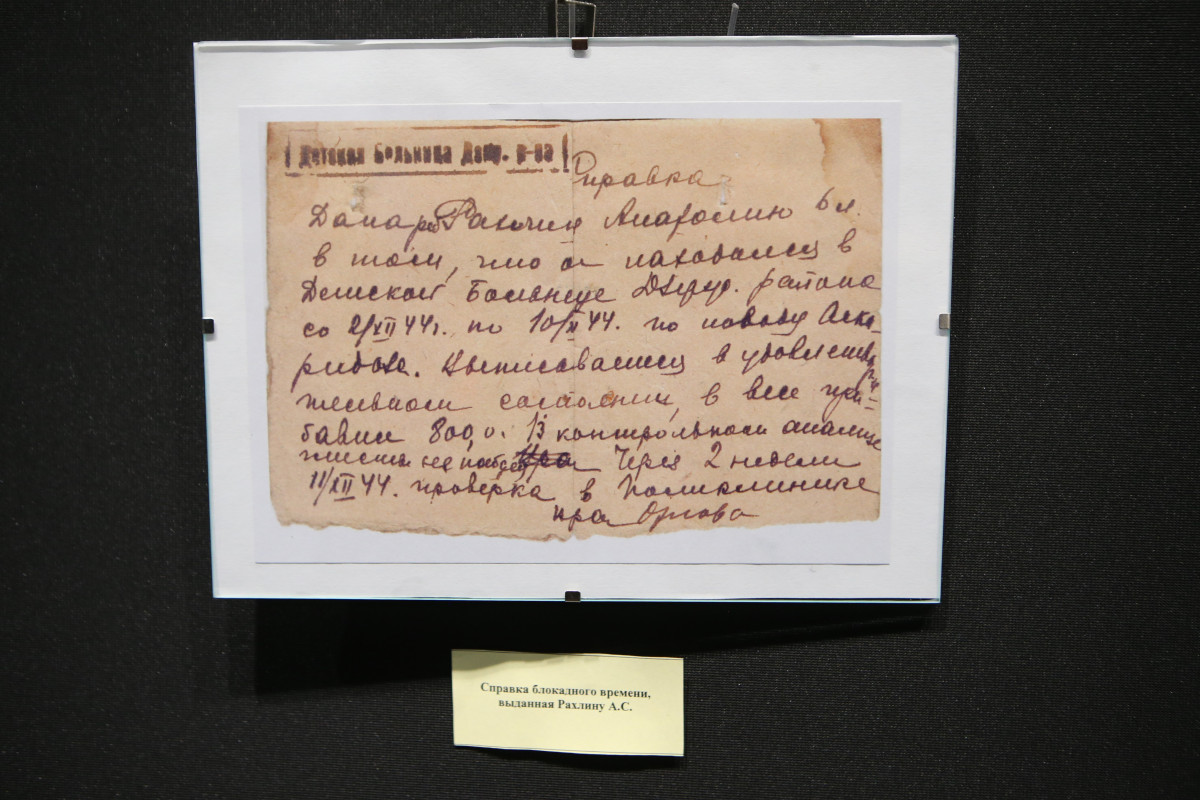 Детская Больница Дзер. р-на
Справка
Дана Рахлин Анатолию 6 л.
в том, что он находился в
Детской Больнице Дзерж. района
со 2/XII 44г. по 10/XII 44. по поводу Аска-
ридоза. Выписывается в удовлетвори-
тельном состоянии, в весе при-
бавил 800,0. В контрольном анализе
глисты не Через 2 недели
11/XII 44. проверка в Поликлинике
Орлова
Справка блокадного времени,
выданная Рахлину А.С.